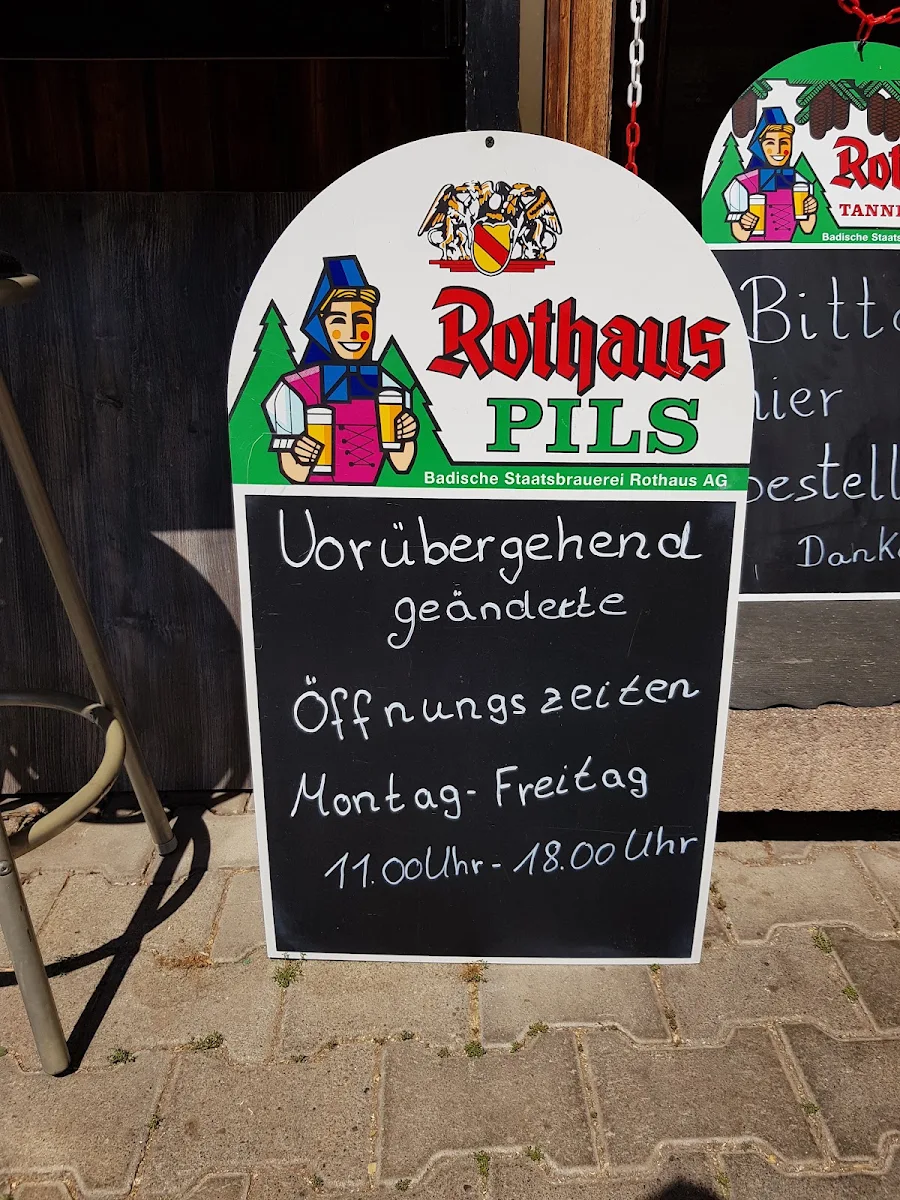 Rothaus
PILS
Badische Staatsbrauerei Rothaus AG
Vorübergehend
geänderte
Öffnungszeiten
Montag - Freitag
11.00 Uhr - 18.00 Uhr
Rot
TANN
Badische Staats
Bitte
hier
bestell
Danke